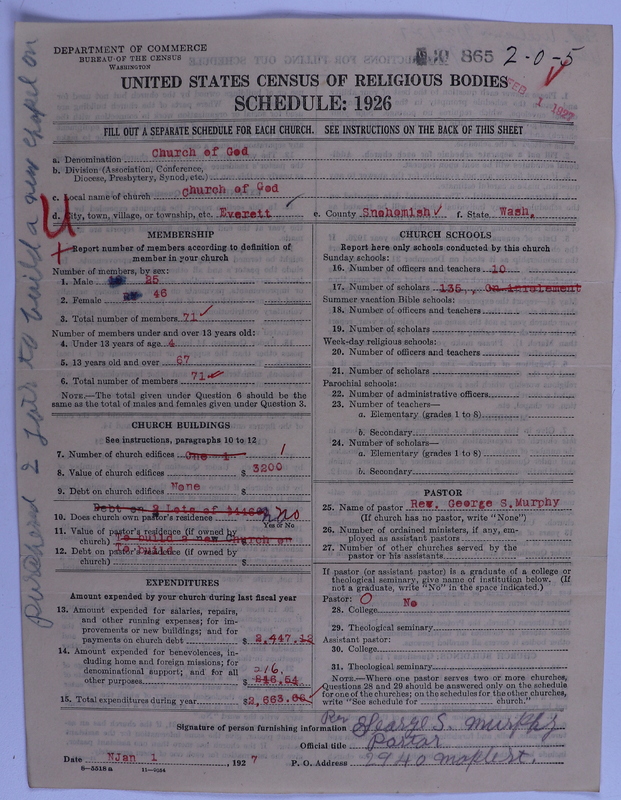 DEPARTMENT OF COMMERCE
BUREAU OF THE CENSUS
WASHINGTON
865 2-0-5
FEB 1 1927
UNITED STATES CENSUS OF RELIGIOUS BODIES
SCHEDULE: 1926
FILL OUT A SEPARATE SCHEDULE FOR EACH CHURCH. SEE INSTRUCTIONS ON THE BACK OF THIS SHEET
a. Denomination Church of God
b. Division (Association, Conference,
Diocese, Presbytery, Synod, etc.)
c. Local name of church church of God
d. City, town, village, or township, etc. Everett e. County Snohomish f. State Wash,
Purchased 2 Lots to build a new chapel on
MEMBERSHIP
Report number of members according to definition of
member in your church
Number of members, by sex:
1. Male 25
2. Female 46
3. Total number of members 71
Number of members under and over 13 years old:
4. Under 13 years of age 4
5. 13 years old and over 67
6. Total number of members 71
NOTE.—The total given under Question 6 should be
the same as the total of males and females given under Question 3.
CHURCH BUILDINGS
See instructions, paragraphs 10 to 12
7. Number of church edifices One 1 1
8. Value of church edifices $ 3200
9. Debt on church edifices None $
Debt on 2 Lots of
10. Does church own pastor's residence No
Yes or No
11. Value of pastor's residence (if owned by
church) To build a new Church on
12. Debt on pastor's residence (if owned by
church) To build $
EXPENDITURES
Amount expended by your church during last fiscal year
13. Amount expended for salaries, repairs,
and other running expenses; for im-
provements or new buildings; and for
payments on church debt $ 2,447.12
14. Amount expended for benevolences, in-
cluding home and foreign missions; for
denominational support; and for all
other purposes $ 216. 216.54
15. Total expenditures during year $2,663.
CHURCH SCHOOLS
Report here only schools conducted by this church
Sunday schools:
16. Number of officers and teachers 10
17. Number of scholars 135, On inrolement
Summer vacation Bible schools:
18. Number of officers and teachers
19. Number of scholars
Week-day religious schools:
20. Number of officers and teachers
21. Number of scholars
Parochial schools:
22. Number of administrative officers
23. Number of teachers—
a. Elementary (grades 1 to 8)
b. Secondary
24. Number of scholars—
a. Elementary (grades 1 to 8)
b. Secondary
PASTOR
25. Name of pastor Rev. George S. Murphy
(If church has no pastor, write "None")
26. Number of ordained ministers, if any, em-
ployed as assistant pastors
27. Number of other churches served by the
pastor or his assistants
If pastor (or assistant pastor) is a graduate of a college or
theological seminary, give name of institution below. (If
not a graduate, write "No" in the space indicated.)
Pastor: O No
28. College
29. Theological seminary
Assistant pastor:
30. College
31. Theological seminary
NOTE.—Where one pastor serves two or more churches,
Questions 28 and 29 should be answered only on the schedule
for one of the churches; on the schedules for the other churches,
write "See schedule for church."
Signature of person furnishing information Rev George S. Murphy
Official title Pastor
Date NJan 1, 1927 P. O. Address 2940 Maple st.
8—5518 a 11—9034